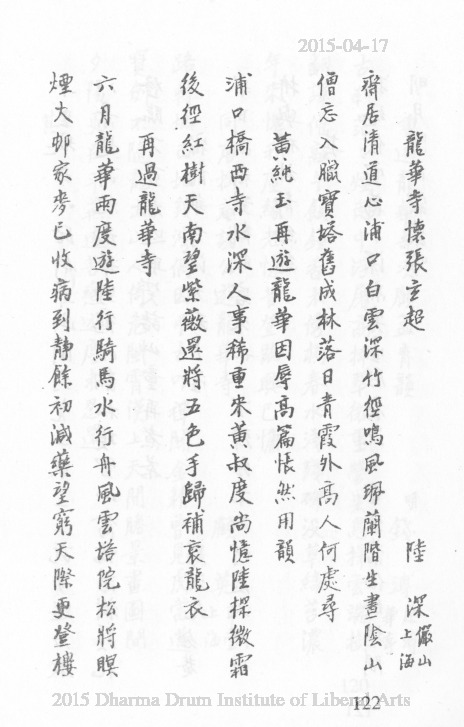 2015-04-17
龍華寺懷張立起
陸　深 儼山 上海
齋居清道心浦口白雲深竹徑鳴風珮蘭階生晝陰山
僧忘入臘寶塔舊成林落日青霞外高人何處尋
黃純玉再遊龍華因辱高篇悵然用韻
浦口橋西寺水深人事稀重來黃叔度尚憶陸探微霜
後徑紅樹天南望紫薇還將五色手歸補袞龍衣
再過龍華寺
六月龍華兩度遊陸行騎馬水行舟風雲塔院松將暝
煙火邨家麥已收病到靜餘初減藥望窮天際更登樓
122
2015 Dharma Drum Institute of Liberal Arts